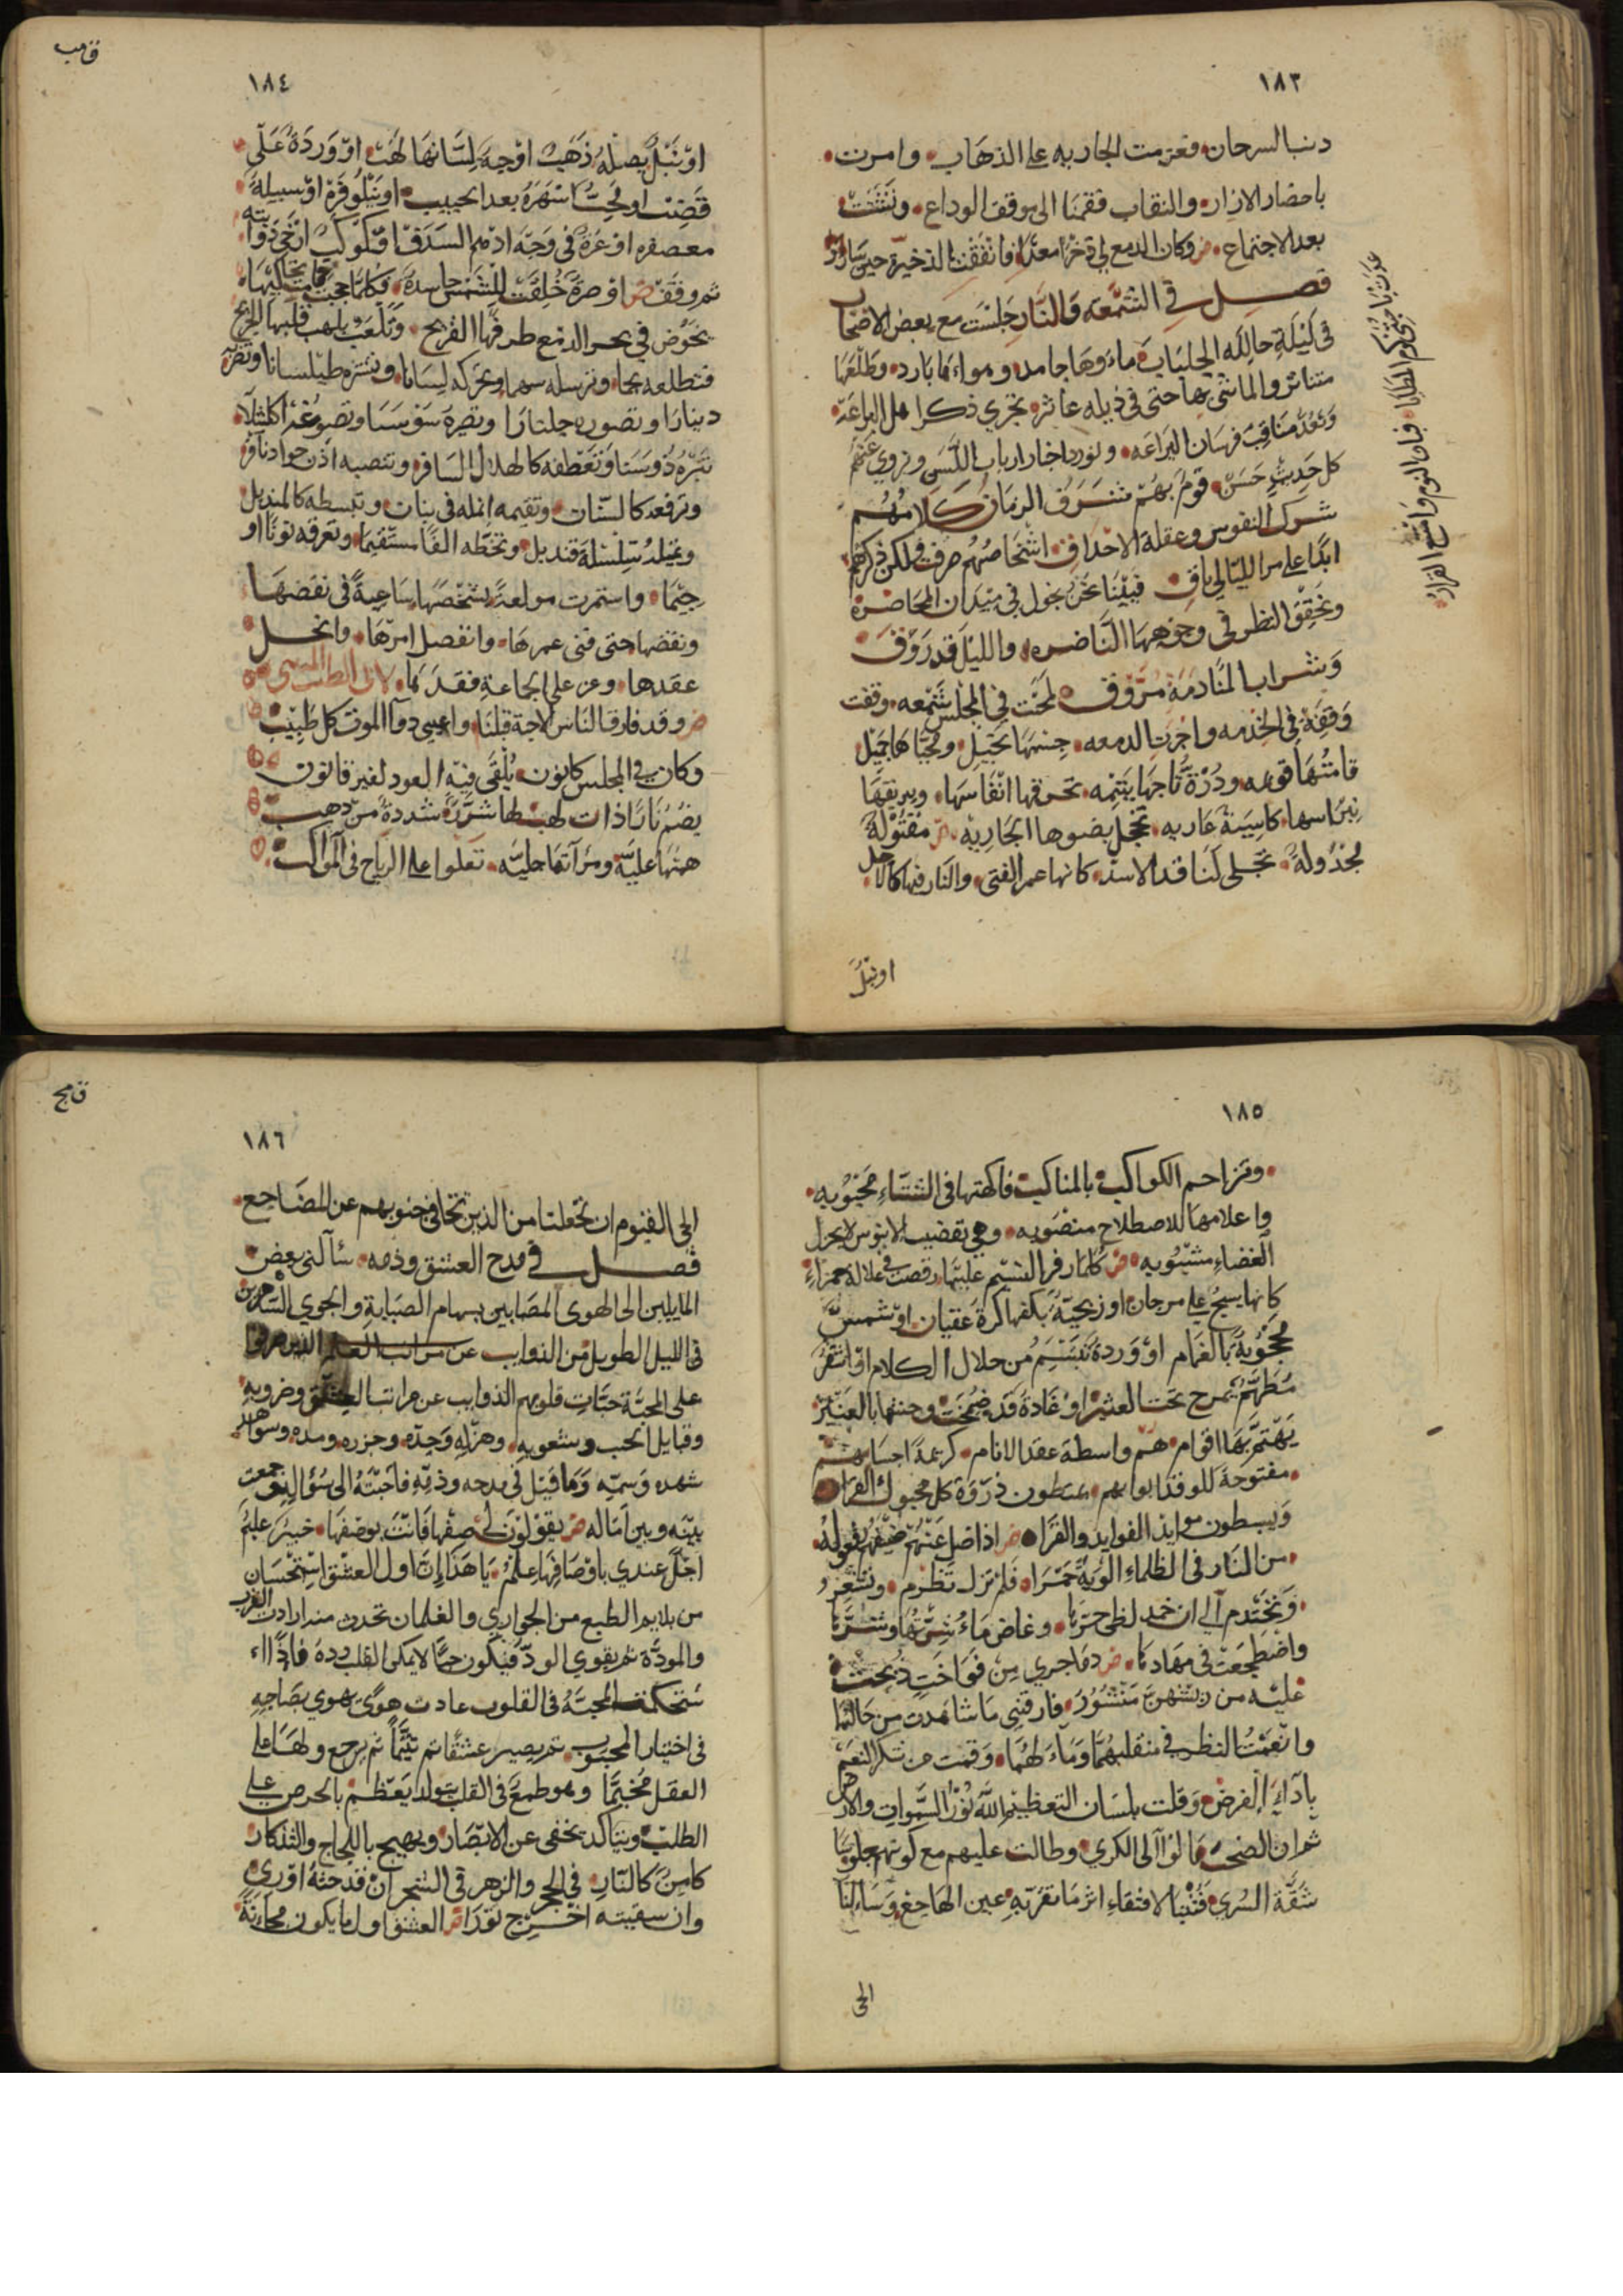 ١٨٣
دنب السرحان فعزمت الجاريه على الذهاب وامرت
باحضار الازار والنقاب فقمنا الى موقف الوداع وتشتت
بعد الاجتماع وكان الدمع لي ذخرا معدا فانفقت الذخيرة حين ساروا
فصل في الشمعه والنار جلست مع بعض الاصحاب
في ليلة حالكه الجلباب ماءوهاجامد وهواءها بارد وطلعها
متناثر والماشي بها حتى في ذيله عاثر نجري ذكر اهل البراعة
ونعد مناقب فرسان اليراعه ونورد اخبار ارباب اللسن ونروي عنهم
كل حديث حسن قوم بهم شرف الزمان كلامهم
شرك النفوس وعقلة الاحداق اشخاصهم صرفت ولكن ذكرهم
ابدا على مر الليالي باق فبينا نحن نجول في ميدان المحاضره
ونحقق النظر في وجوهها الناضره والليل قد روق
وشراب المنادمة مروق لمحت في المجلس شمعه وقفت
وقفة في الخدمه واجرت الدمعه جسمها نحيل ومحياها جميل
قامتها قويمه ودرة تاجها يتيمه تحرقها انفاسها وبريقها
نبراسها كاسية عاريه تخجل بضوها الجاريه مفتولة
مجدولة تحكي لنا قد الاسد كانها عمر الفتى والنار فيها كالاجل
اونبل
عدت يا جتكم المطايا فبان النوم وامتنع القرار
ق مب
١٨٤
اونبل بصله ذهب اوحية لسانها لهب او وردة على
قضيب او محب اسهره بعد الحبيب او نيلوفرة او سبيكة
معصفره او غرة في وجه ادهم السدف او كوكب ارخى ذوابته
ثم وقف او ضرة خلقت للشمس حاسدة فكلما حجبت قامت تحاكيها
تخوض في بحر الدمع طرفها القريح وتلعب بلهب قلبها الجريح
فتطلعه نجما وترسله سهما وتحركه لسانا وتنشره طيلسانا وتضربه
دينارا وتصوره جلنارا وتصيره سوسنا وتصوغه اكليلا
تبره ذو سنا وتعطفه كالهلال السافر وتنصبه اذن جواد نافر
وترفعه كالسنان وتقيمه انمله في بنان وتبسطه كالمنديل
وتميله سلسلة قنديل وتخطه الفا مستقيما وتعرقه نونا او
جيما واستمرت مولعة بشخصها ساعية في نقصها
ونقضها حتى فنى عمرها وانفصل امرها وانحل
عقدها وعز على الجماعة فقدها لابي الطيب المتنبي
وقد فارق الناس الاحبة قبلنا واعيى دوآ الموت كل طبيب
وكان في المجلس كانون يلقى فيه العود لغير قانون
يضم نارا ذات لهب لها شرر شددة من ذهب
همتها عليه ومرآتها جليه تعلوا على الرياح في المواكب
١٨٥
وتزاحم الكواكب بالمناكب فاكهتها في الشتاء محبوبه
واعلامها للاصطلاح منصوبه وهي تقضيب الابنوس لا بجزل
الغضاء مشبوبه كلما رفرف النسيم عليها رقصت في غلالة حمراء
كانها يسبح على مرجان او زنجية بكفها كرة عقيان او شمس
محجوبة بالغمام او وردة تبتسم من خلال الكلام او اشقر
مطهم يمرح تحت العثير او غادة قد ضمخت وجنتها بالعنبر
يهتم بها اقوام هم واسطة عقد الانام كريمة احسابهم
مفتوحة للوفد ابوابهم يمتطون ذروة كل محبوك القرا
ويبسطون موايد الفوايد والقرا اذا ضل عنهم ضيفهم يقوله
من النار في الظلماء الوية حمرا فلم تزل تضرم وتشعر
وتختدم الى ان خمد لظى حرها وغاض ماء شرتها وشرها
واضطجعت في مهادها دما جرى من فواخت ذبحت
عليه من ريشهن منشور فارقني ما شاهدت من حالتهما
وانعمت النظر في منقلبهما وماء لهما وقمت من شكر النعم
باداء الفرض وقلت بلسان التعظيم الله نور السموات والارض
ثم ان الصحب مالوا الى الكرى وطالت عليهم مع كونهم جلوسا
شقة السرى فقنا لاقتفاء اثر ما تقر به عين الهاجع وساءلنا
الحي
ق مج
١٨٦
الحي القيوم ان تجعلنا من الذين تتجافى جنوبهم عن المضاجع
فصل في مدح العشق وذمه سآلني بعض
المايلين الى الهوى المصابين بسهام الصبابة والجوى الساهرين
في الليل الطويل من النوايب عن مراتب العلم الذين مرقوا
على المحبة حبات قلوبهم الذوايب عن مراتب العشق وضروبه
وقبايل الحب وشعوبه وهزله وجده وجزره ومده وسواهد
شهده وسمه وما قيل في مدحه وذمه فاجبته الى سؤاله وجمعت
بينه وبين اماله يقولون لي صفها فانت بوصفها خبير علم
اجل عندي باوصافها علم يا هذا ان اول العشق استحسان
من يلايم الطبع من الجواري والغلمان تحدث منه ارادت القرب
والمودة ثم يقوى الود فيكون حبا لا يمكى القلب رده فاذا
استحكمت المحبة في القلوب عادت هوى يهوي بصاحبه
في اختيار المحبوب ثم يصير عشقا ثم تتيما ثم يرجع ولها على
العقل مخيما وهو طمع في القلب يتولد يعظم بالحرص على
الطلب ويتاكد يخفى عن الابصار ويهيج باللجاج والتذكار
كامن كالنار في الحجر والزهر في الشجر ان قدحته اورى
وان سقيته اخرج نورا العشق اول ما يكون مجانة